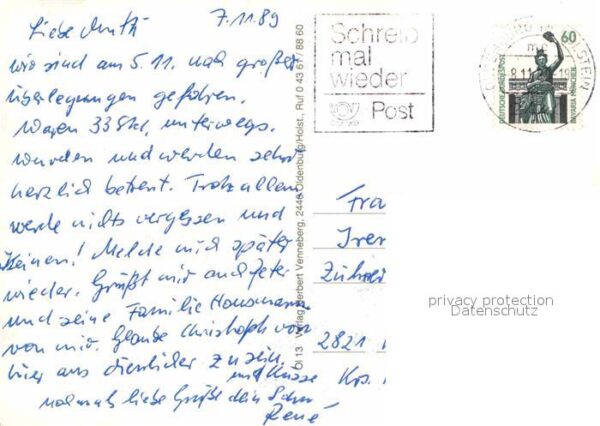 7.11.89
Liebe Mutti
wir sind am 5.11. nach großen
Überlegungen gefahren.
Waren 33 Std. unterwegs.
wurden und werden sehr
herzlich betreut. Trotz allem
werde nichts vergessen und
Keinen! Melde mich später
wieder. Grüßt mir auch Peter
und seine Familie Hausmann
von mir. Glaube Christoph von
hier aus dienlicher zu sein.
und Küsse
nochmals liebe Grüße dein Sohn
René
Ol 13 Verlag Herbert Venneberg, 2440 Oldenburg/Holst., Ruf 0 43 61 / 88 60
Schreib
mal
wieder
Post
60
DEUTSCHE BUNDESPOST
BAVARIA MÜNCHEN
8.11.
HOLSTEIN
Fra
Iren
2821
Krs.
privacy protection
Datenschutz